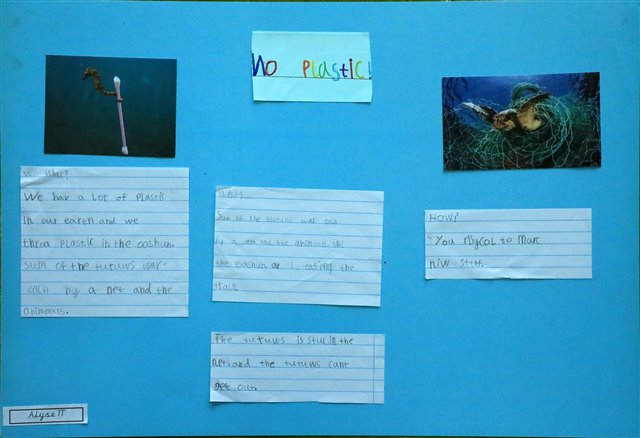 No Plastic!
We What?
We hav a Lot of Plastic
in our earth and we
throa Plastic in the oashun.
sum of the tutuws war
cach by a net and the
animoals.
What?
Sum of the tutuws war cach
by a net and the animouls in
the oashun ar eating the
trash.
The tutuws is stuc in the
net. and the tutuws cant
get out.
HOW?
You risycol to marc
niw stuf.
Alyse TT